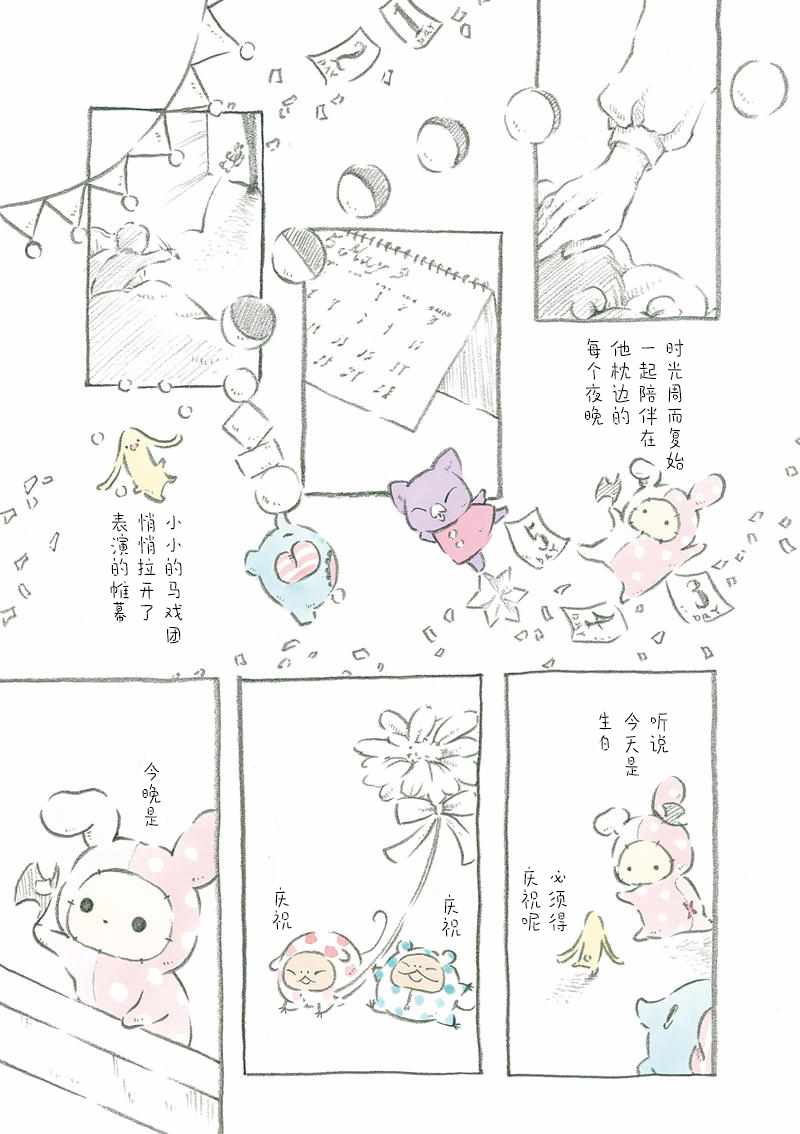 1
DAY
2
DAY
5 May
时光周而复始
一起陪伴在
他枕边的
每个夜晚
5
DAY
4
DAY
3
DAY
小小的马戏团
悄悄拉开了
表演的帷幕
听说
今天是
生日
必须得
庆祝呢
庆祝
庆祝
今晚是